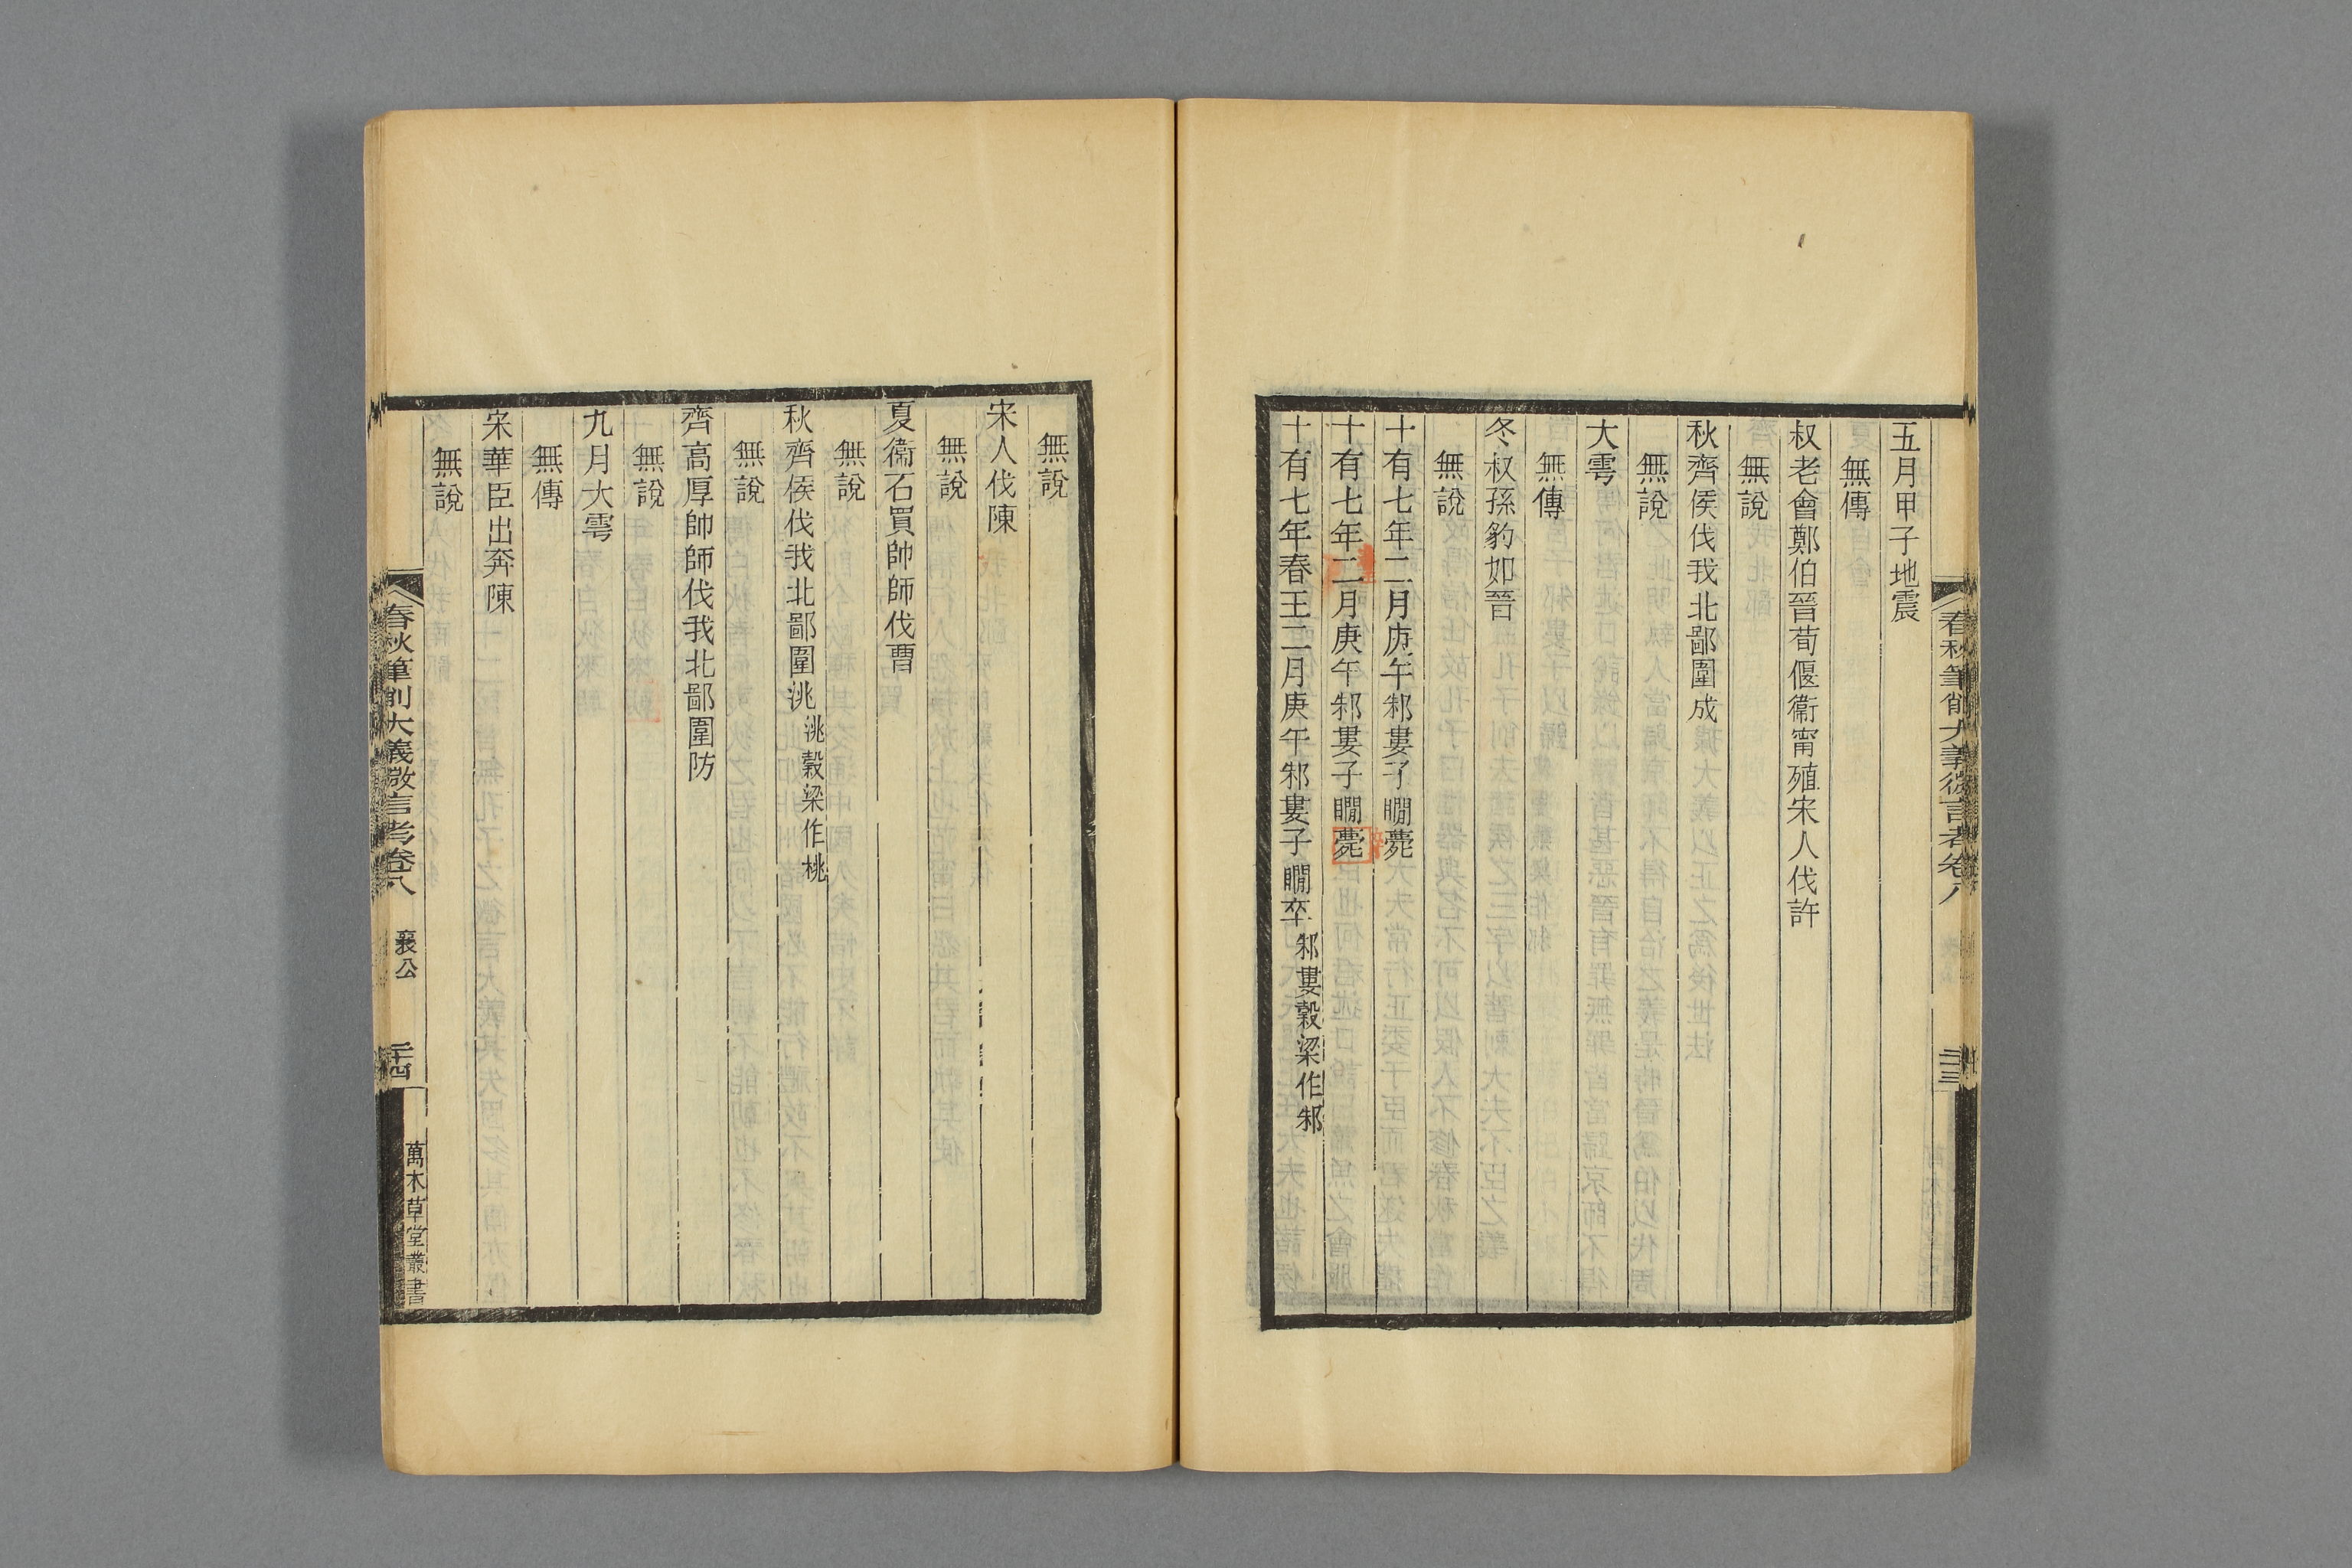 五月甲子地震
無傳
叔老會鄭伯晉荀偃衞甯殖宋人伐許
無說
秋齊侯伐我北鄙圍成
無說
大雩
無傳
冬叔孫豹如晉
無說
十有七年二月庚午邾婁子瞯薨
十有七年二月庚午邾婁子瞯薨
十有七年春王二月庚午邾婁子瞯卒邾婁穀梁作邾
春秋筆削大義微言考卷八
二十三
無說
宋人伐陳
無說
夏衞石買帥師伐曹
無說
秋齊侯伐我北鄙圍洮洮穀梁作桃
無說
齊高厚帥師伐我北鄙圍防
無說
九月大雩
無傳
宋華臣出奔陳
無說
春秋筆削大義微言考卷八 襄公 二十四 萬木草堂叢書